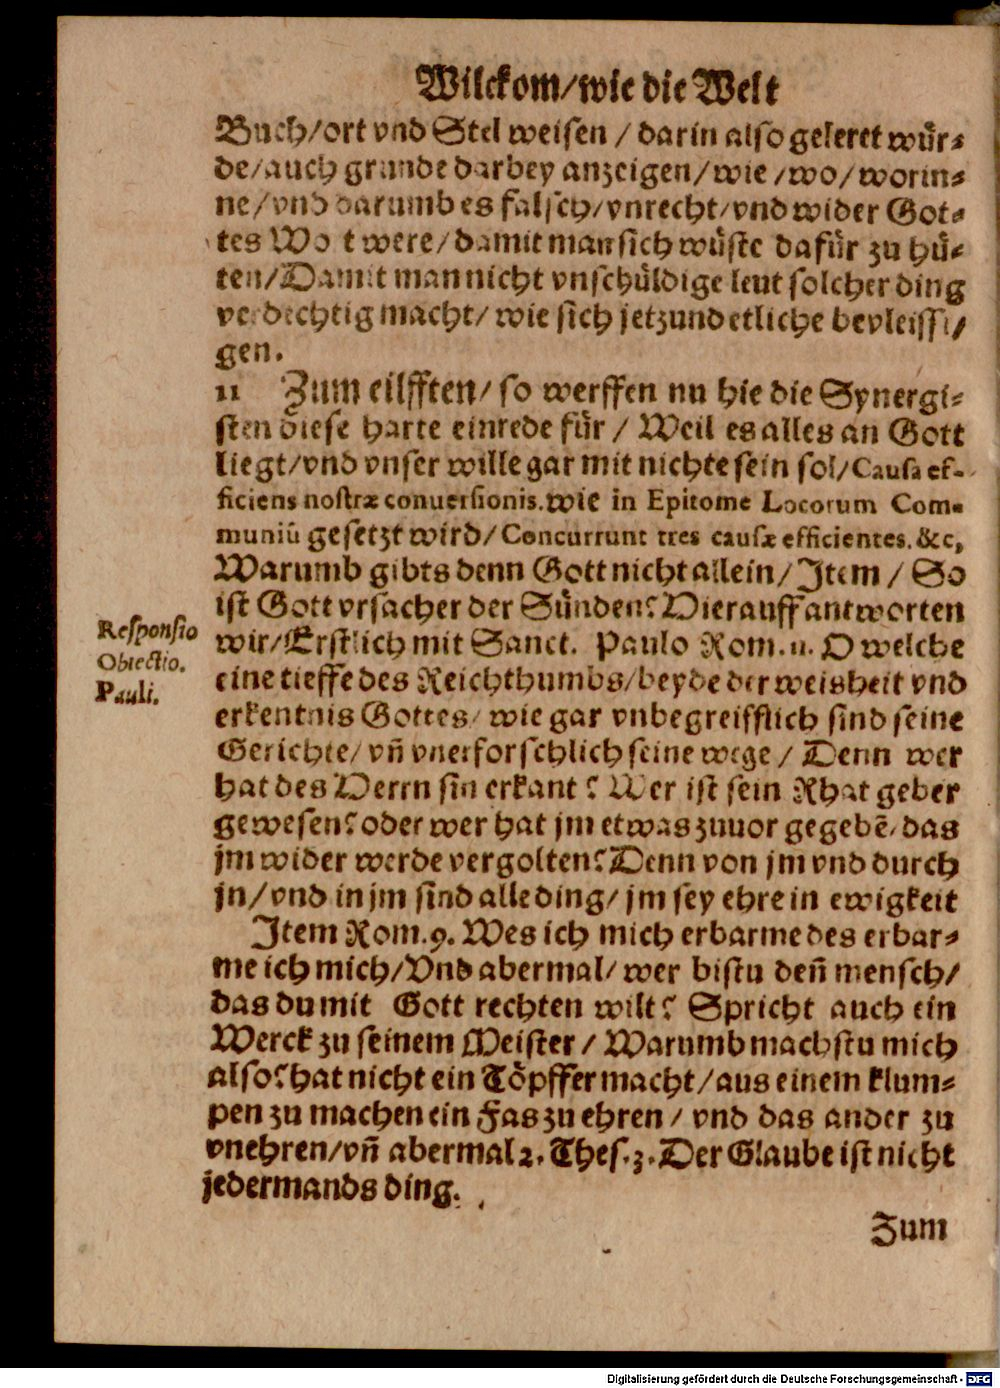 Wilckom/wie die Welt
Buch/ort vnd Stel weisen / darin also geleret wür⸗
de/auch grunde darbey anzeigen/wie /wo/ worin⸗
ne/vnd darumb es falsch/vnrecht/vnd wider Got⸗
tes Wo t were/damit man sich wüste dafür zu hü⸗
ten/Damit man nicht vnschüldige leut solcher ding
verdechtig macht/ wie sich jetzund etliche bevleissi/
gen.
11 Zum eilfften/ so werffen nu hie die Synergi⸗
sten diese harte einrede für / Weil es alles an Gott
liegt/vnd vnser wille gar mit nichte sein sol/Causa ef-
ficiens nostræ conuersionis. wie in Epitome Locorum Com-
muniū gesetzt wird/ Concurrunt tres causæ efficientes. &c,
Warumb gibts denn Gott nicht allein/Item / So
ist Gott vrsacher der Sünden? Hierauff antworten
wir/Erstlich mit Sanct. Paulo Rom. 11. O welche
eine tieffe des Reichthumbs/beyde der weisheit vnd
erkentnis Gottes/ wie gar vnbegreifflich sind seine
Gerichte/ vñ vnerforschlich seine wege / Denn wer
hat des Herrn sin erkant ? Wer ist sein Rhat geber
gewesen? oder wer hat jm etwas zuuor gegebẽ/ das
jm wider werde vergolten? Denn von jm vnd durch
jn/vnd in jm sind alle ding/ jm sey ehre in ewigkeit
Item Rom. 9. Wes ich mich erbarme des erbar⸗
me ich mich/Vnd abermal/ wer bistu deñ mensch/
das du mit Gott rechten wilt? Spricht auch ein
Werck zu seinem Meister / Warumb machstu mich
also? hat nicht ein Töpffer macht/aus einem klum⸗
pen zu machen ein Fas zu ehren / vnd das ander zu
vnehren/vñ abermal 2. Thes. 3. Der Glaube ist nicht
jedermands ding.
Zum
Responsio
Obiectio.
Pauli.
Digitalisierung gefördert durch die Deutsche Forschungsgemeinschaft - DFG